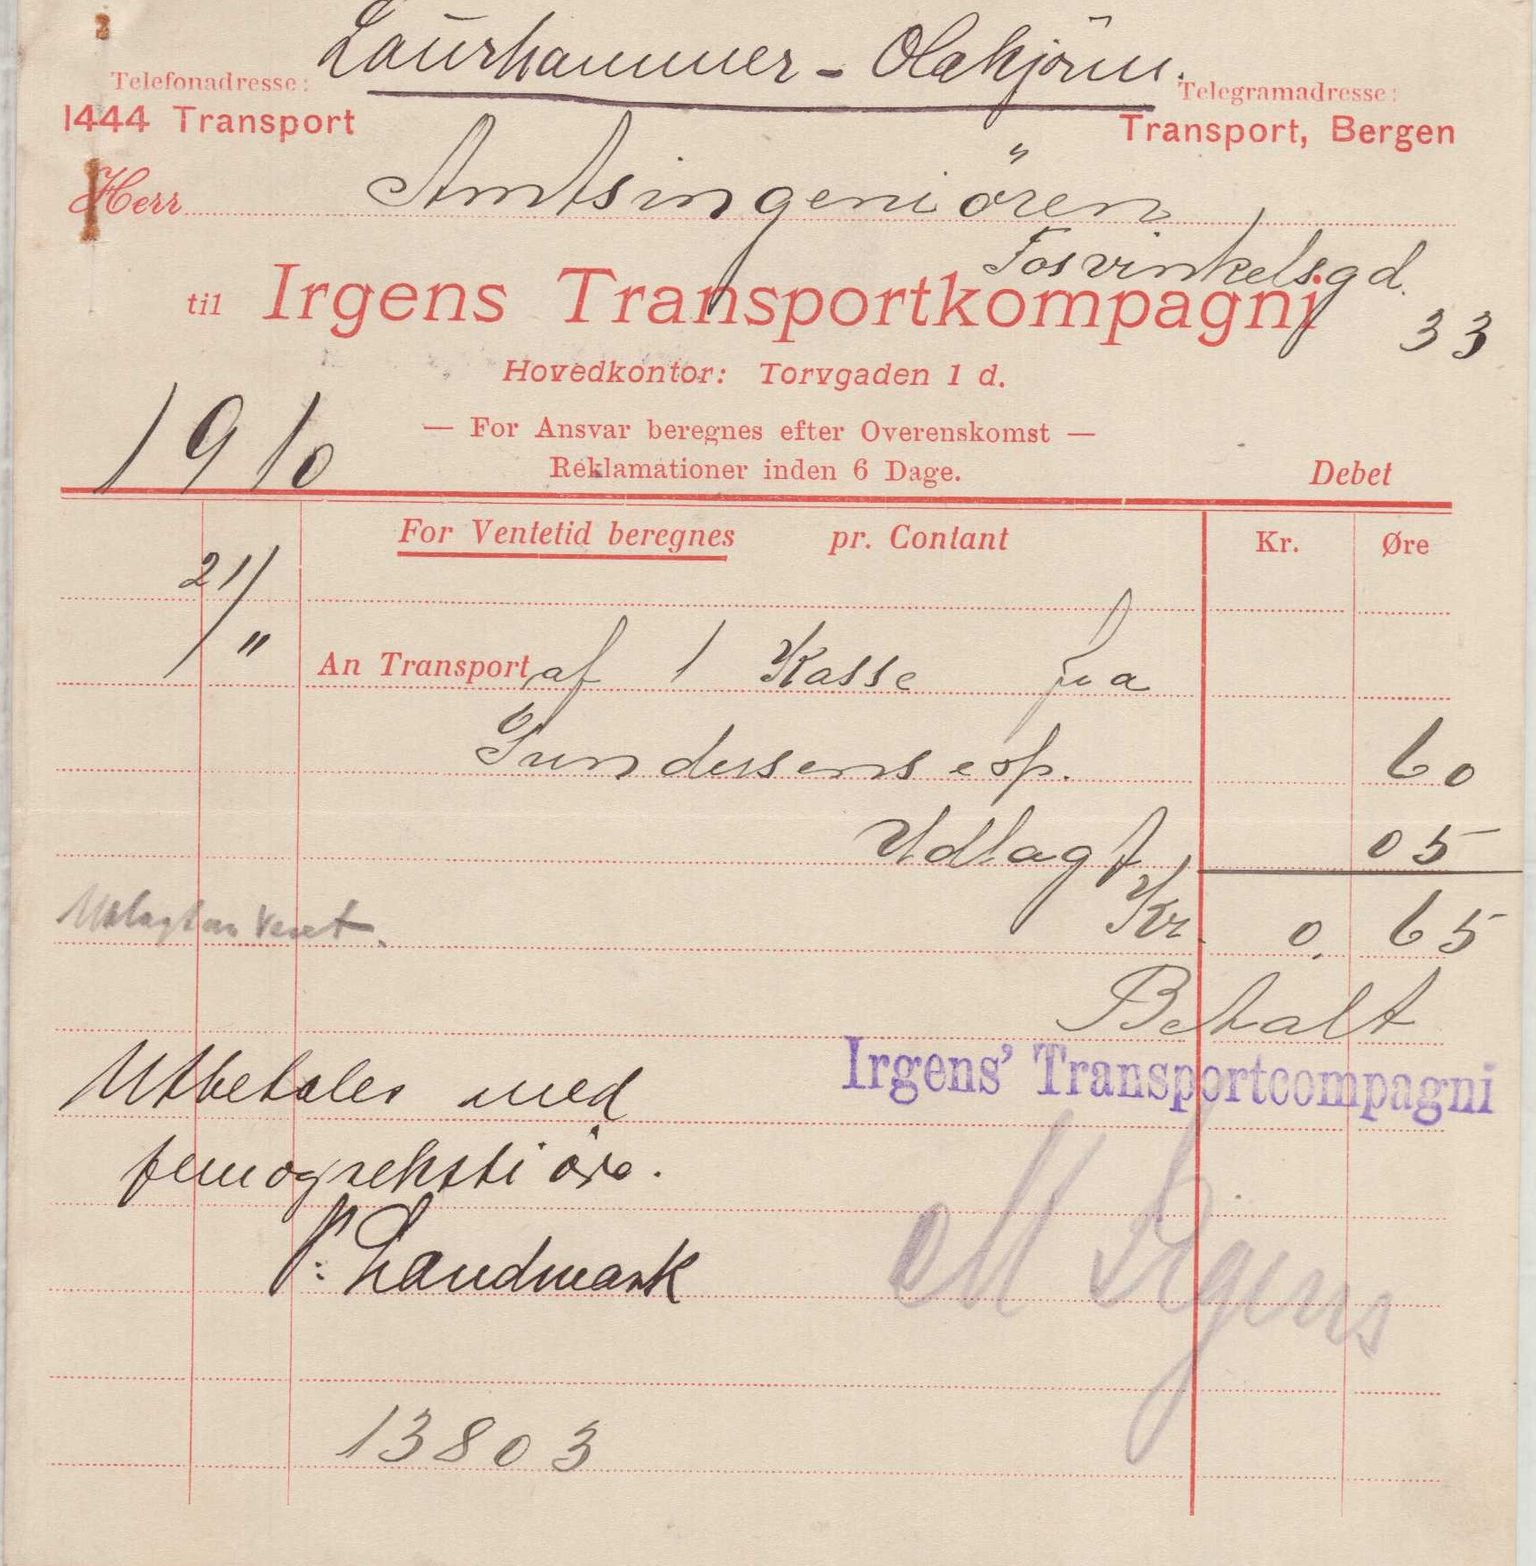 Laurhammer - Olakjörn.
Telefonadresse:
1444 Transport
Telegramadresse:
Transport, Bergen
Herr Amtsingeniören,
Fosvinkelsgd. 33
til Irgens Transportkompagni
Hovedkontor: Torvgaden 1 d.
1910
— For Ansvar beregnes efter Overenskomst —
Reklamationer inden 6 Dage.
Debet
For Ventetid beregnes pr. Contant Kr. Øre
21/11
An Transport af 1 Kasse fra
Gundersens exp. 60
Udlagt 05
Kr. 0. 65
Betalt
Irgens' Transportcompagni
Utbetales med
femogseksti öre.
P. Landmark
M Irgens
13803